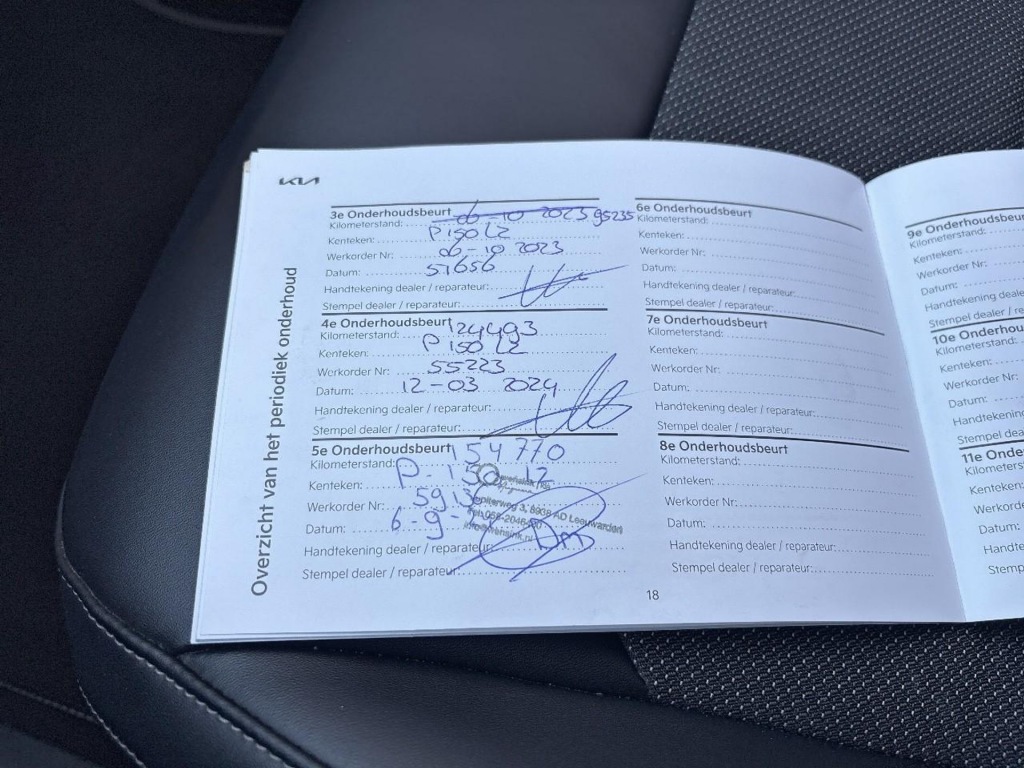 KIA
Overzicht van het periodiek onderhoud
3e Onderhoudsbeurt
Kilometerstand: 06-10 2023 95235
Kenteken: P150LZ
Werkorder Nr: 06-10 2023
Datum: 51656
Handtekening dealer / reparateur:
Stempel dealer / reparateur:
4e Onderhoudsbeurt
Kilometerstand: 124493
Kenteken: P150LZ
Werkorder Nr: 55223
Datum: 12-03 2024
Handtekening dealer / reparateur:
Stempel dealer / reparateur:
5e Onderhoudsbeurt
Kilometerstand: 154770
Kenteken: P-150
Werkorder Nr:
Datum: 6-9-
3, 8938 AD Leeuwarden
Handtekening dealer / reparateur:
Stempel dealer / reparateur:
6e Onderhoudsbeurt
Kilometerstand:
Kenteken:
Werkorder Nr:
Datum:
Handtekening dealer / reparateur:
Stempel dealer / reparateur:
7e Onderhoudsbeurt
Kilometerstand:
Kenteken:
Werkorder Nr:
Datum:
Handtekening dealer / reparateur:
Stempel dealer / reparateur:
8e Onderhoudsbeurt
Kilometerstand:
Kenteken:
Werkorder Nr:
Datum:
Handtekening dealer / reparateur:
Stempel dealer / reparateur:
18
9e Onderhoudsbeur
Kilometerstand:
Kenteken:
Werkorder Nr:
Datum:
Handtekening dea
Stempel dealer / re
10e Onderhou
Kilometerstand:
Kenteken:
Werkorder Nr:
Datum:
Handtekening
Stempel dea
11e Onder
Kilometers
Kenteken:
Werkorder
Datum:
Handte
Stemp